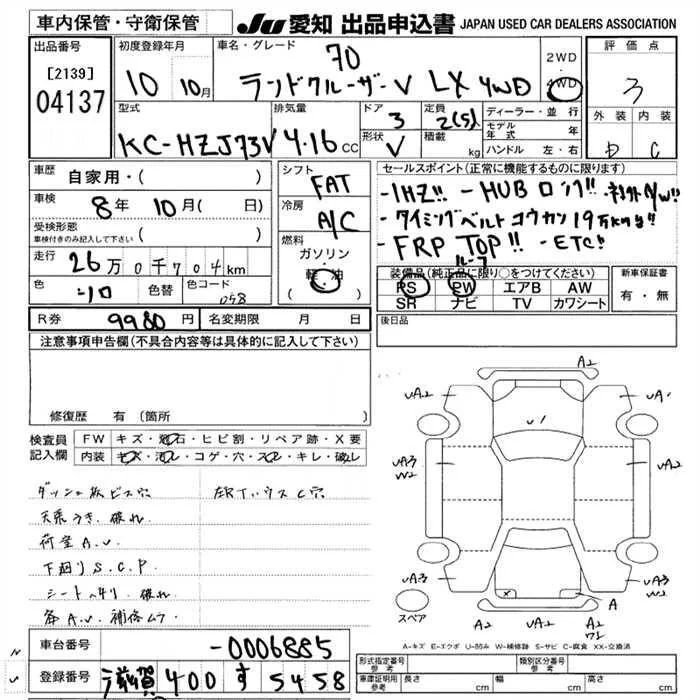 車内保管・守衛保管
JU 愛知 出品申込書 JAPAN USED CAR DEALERS ASSOCIATION
出品番号
[2139]
04137
初度登録年月
10 10月
車名・グレード
70
ランドクルーザーV LX 4WD
2WD
・
4WD
評価点
3
外装 内装
D C
型式
KC-HZJ73V
排気量
4.16 cc
ドア
3
形状
V
定員
2(5)
積載
kg
ディーラー・並行
モデル年式 年
ハンドル 左・右
車歴
自家用・( )
車検
8年 10月( 日)
受検形態
車検付きのみ記入して下さい ( )
走行
26万0千704km
色
シロ
色替
色コード
058
シフト
FAT
冷房
A/C
燃料
ガソリン
・
軽油
( )
セールスポイント(正常に機能するものに限ります)
-1HZ!! -HUB ロック!! -ナナメA/W!!
-タイミングベルトコウカン19万km台!!
-FRP TOP!! -ETC!!
ルーフ
装備品(純正品に限り○をつけてください)
PS PW エアB AW
SR ナビ TV カワシート
新車保証書
有・無
後日品
R券
9980円
名変期限 月 日
注意事項申告欄(不具合内容等は具体的に記入して下さい)
修復歴 有(箇所 )
検査員記入欄
FW キズ・飛石・ヒビ割・リペア跡・X要
内装 キズ・汚レ・コゲ・穴・スレ・キレ・破レ
ダッシュ板ビス穴
天張うき、破れ
荷室A.U.
下廻りS.C.P.
シートヘタリ
A2
UA2
UA1
U1
UA3
W2
UA2
UA3
UA3
W2
A
UA2
A2
W2
スペア
A-キズ E-エクボ U-凹み W-補修跡 S-サビ C-腐食 XX-交換済
車台番号
-0006885
登録番号
滋賀 400 す 5458
形式指定番号
参考
類別区分番号
参考
車庫証明用
参考
長さ cm 幅 cm 高さ cm